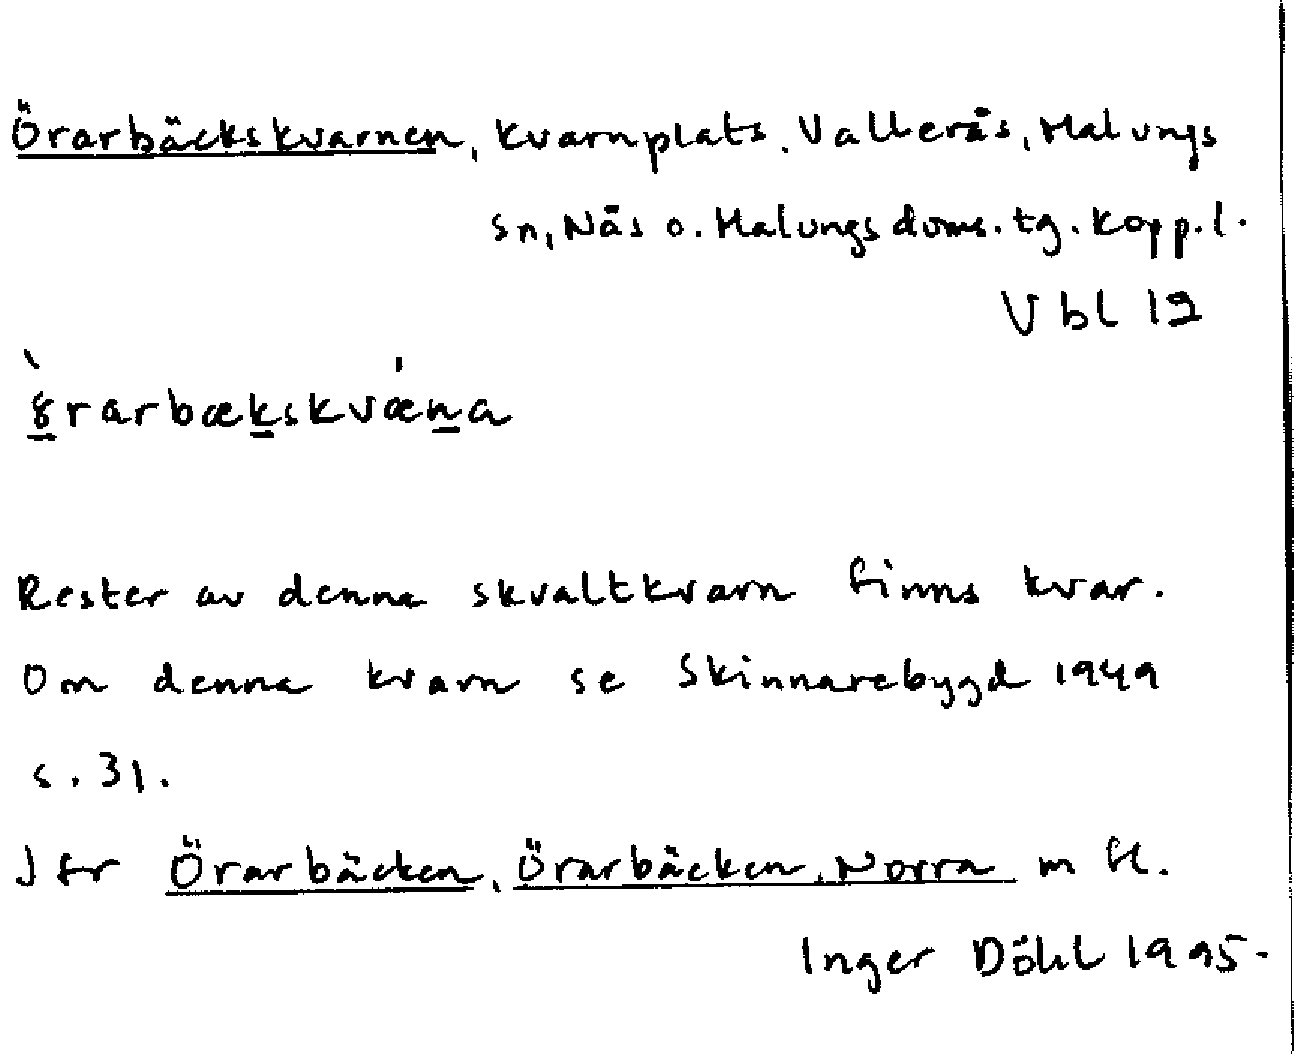 Örarbäckskvarnen, kvarnplats. Vallerås, Malungs
sn, Näs o. Malungs doms. tg. Kopp. l.
Vbl 19
Rester av denna skvaltkvarn finns kvar.
Om denna kvarn se Skinnarebygd 1949
s. 31.
Jfr Örarbäcken, Örarbäcken, Norra m fl.
Inger Döhl 1995.